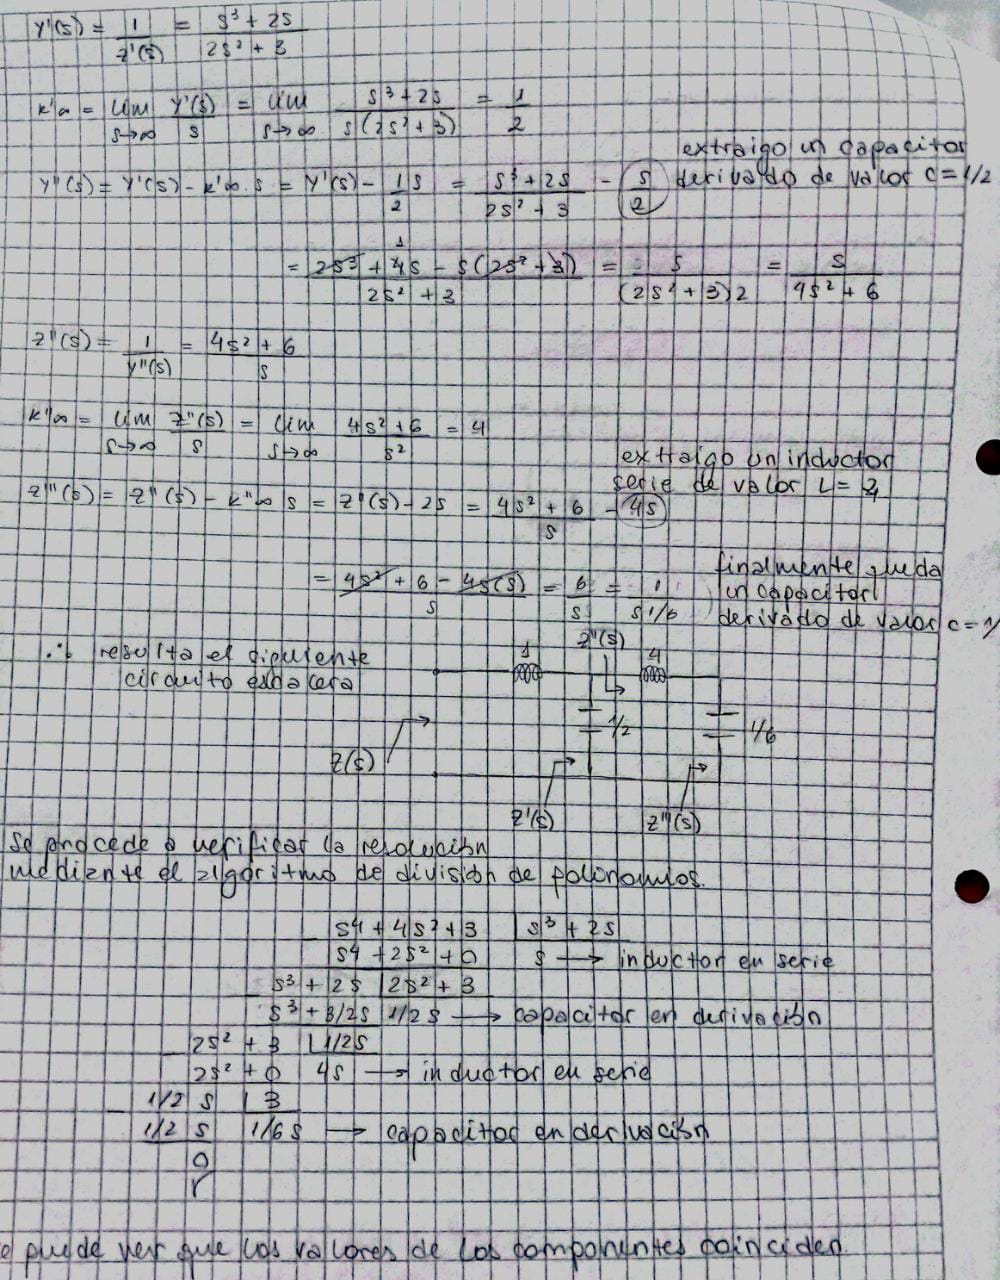 Y'(s) = 1/Z'(s) = (s³ + 2s)/(2s² + 3)
k'∞ = lim s→∞ Y'(s)/s = lim s→∞ (s³ + 2s)/(s(2s² + 3)) = 1/2
extraigo un capacitor
derivado de valor C = 1/2
Y''(s) = Y'(s) - k'∞.s = Y'(s) - 1/2 s = (s³ + 2s)/(2s² + 3) - s/2
= (2s³ + 4s - s(2s² + 3))/(2s² + 3) = s/((2s² + 3)2) = s/(4s² + 6)
Z''(s) = 1/Y''(s) = (4s² + 6)/s
k''∞ = lim s→∞ Z''(s)/s = lim s→∞ (4s² + 6)/s² = 4
extraigo un inductor
serie de valor L = 4
Z'''(s) = Z''(s) - k''∞ s = Z''(s) - 2s = (4s² + 6)/s - 4s
= (4s² + 6 - 4s(s))/s = 6/s = 1/(s 1/6)
finalmente queda
un capacitor
derivado de valor C = 1/
∴ resulta el siguiente
circuito escalera
1 Z''(s) 4
1/2 1/6
Z(s)
Z'(s) Z'''(s)
Se procede a verificar la resolución
mediante el algoritmo de división de polinomios.
s4 + 4s² + 3 | s³ + 2s
s4 + 2s² + 0 s → inductor en serie
s³ + 2s | 2s² + 3
s³ + 3/2s 1/2s → capacitor en derivación
2s² + 3 | 1/2s
2s² + 0 4s → inductor en serie
1/2 s | 3
1/2 s 1/6s → capacitor en derivación
0
r
e puede ver que los valores de los componentes coinciden.